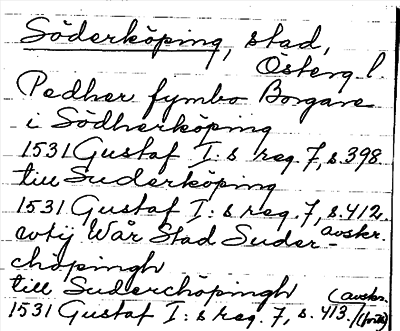 Söderköping, stad,
Österg l.
Pedher fymbo Borgare
i Södherköping
1531 Gustaf I:s reg. 7, s. 398.
till Suderköping
1531 Gustaf I:s reg. 7, s. 412.
avskr.
wtij Wår Stad Suder-
chöpingh
till Suderchöpingh (avskr.
1531 Gustaf I:s reg. 7, s. 413.